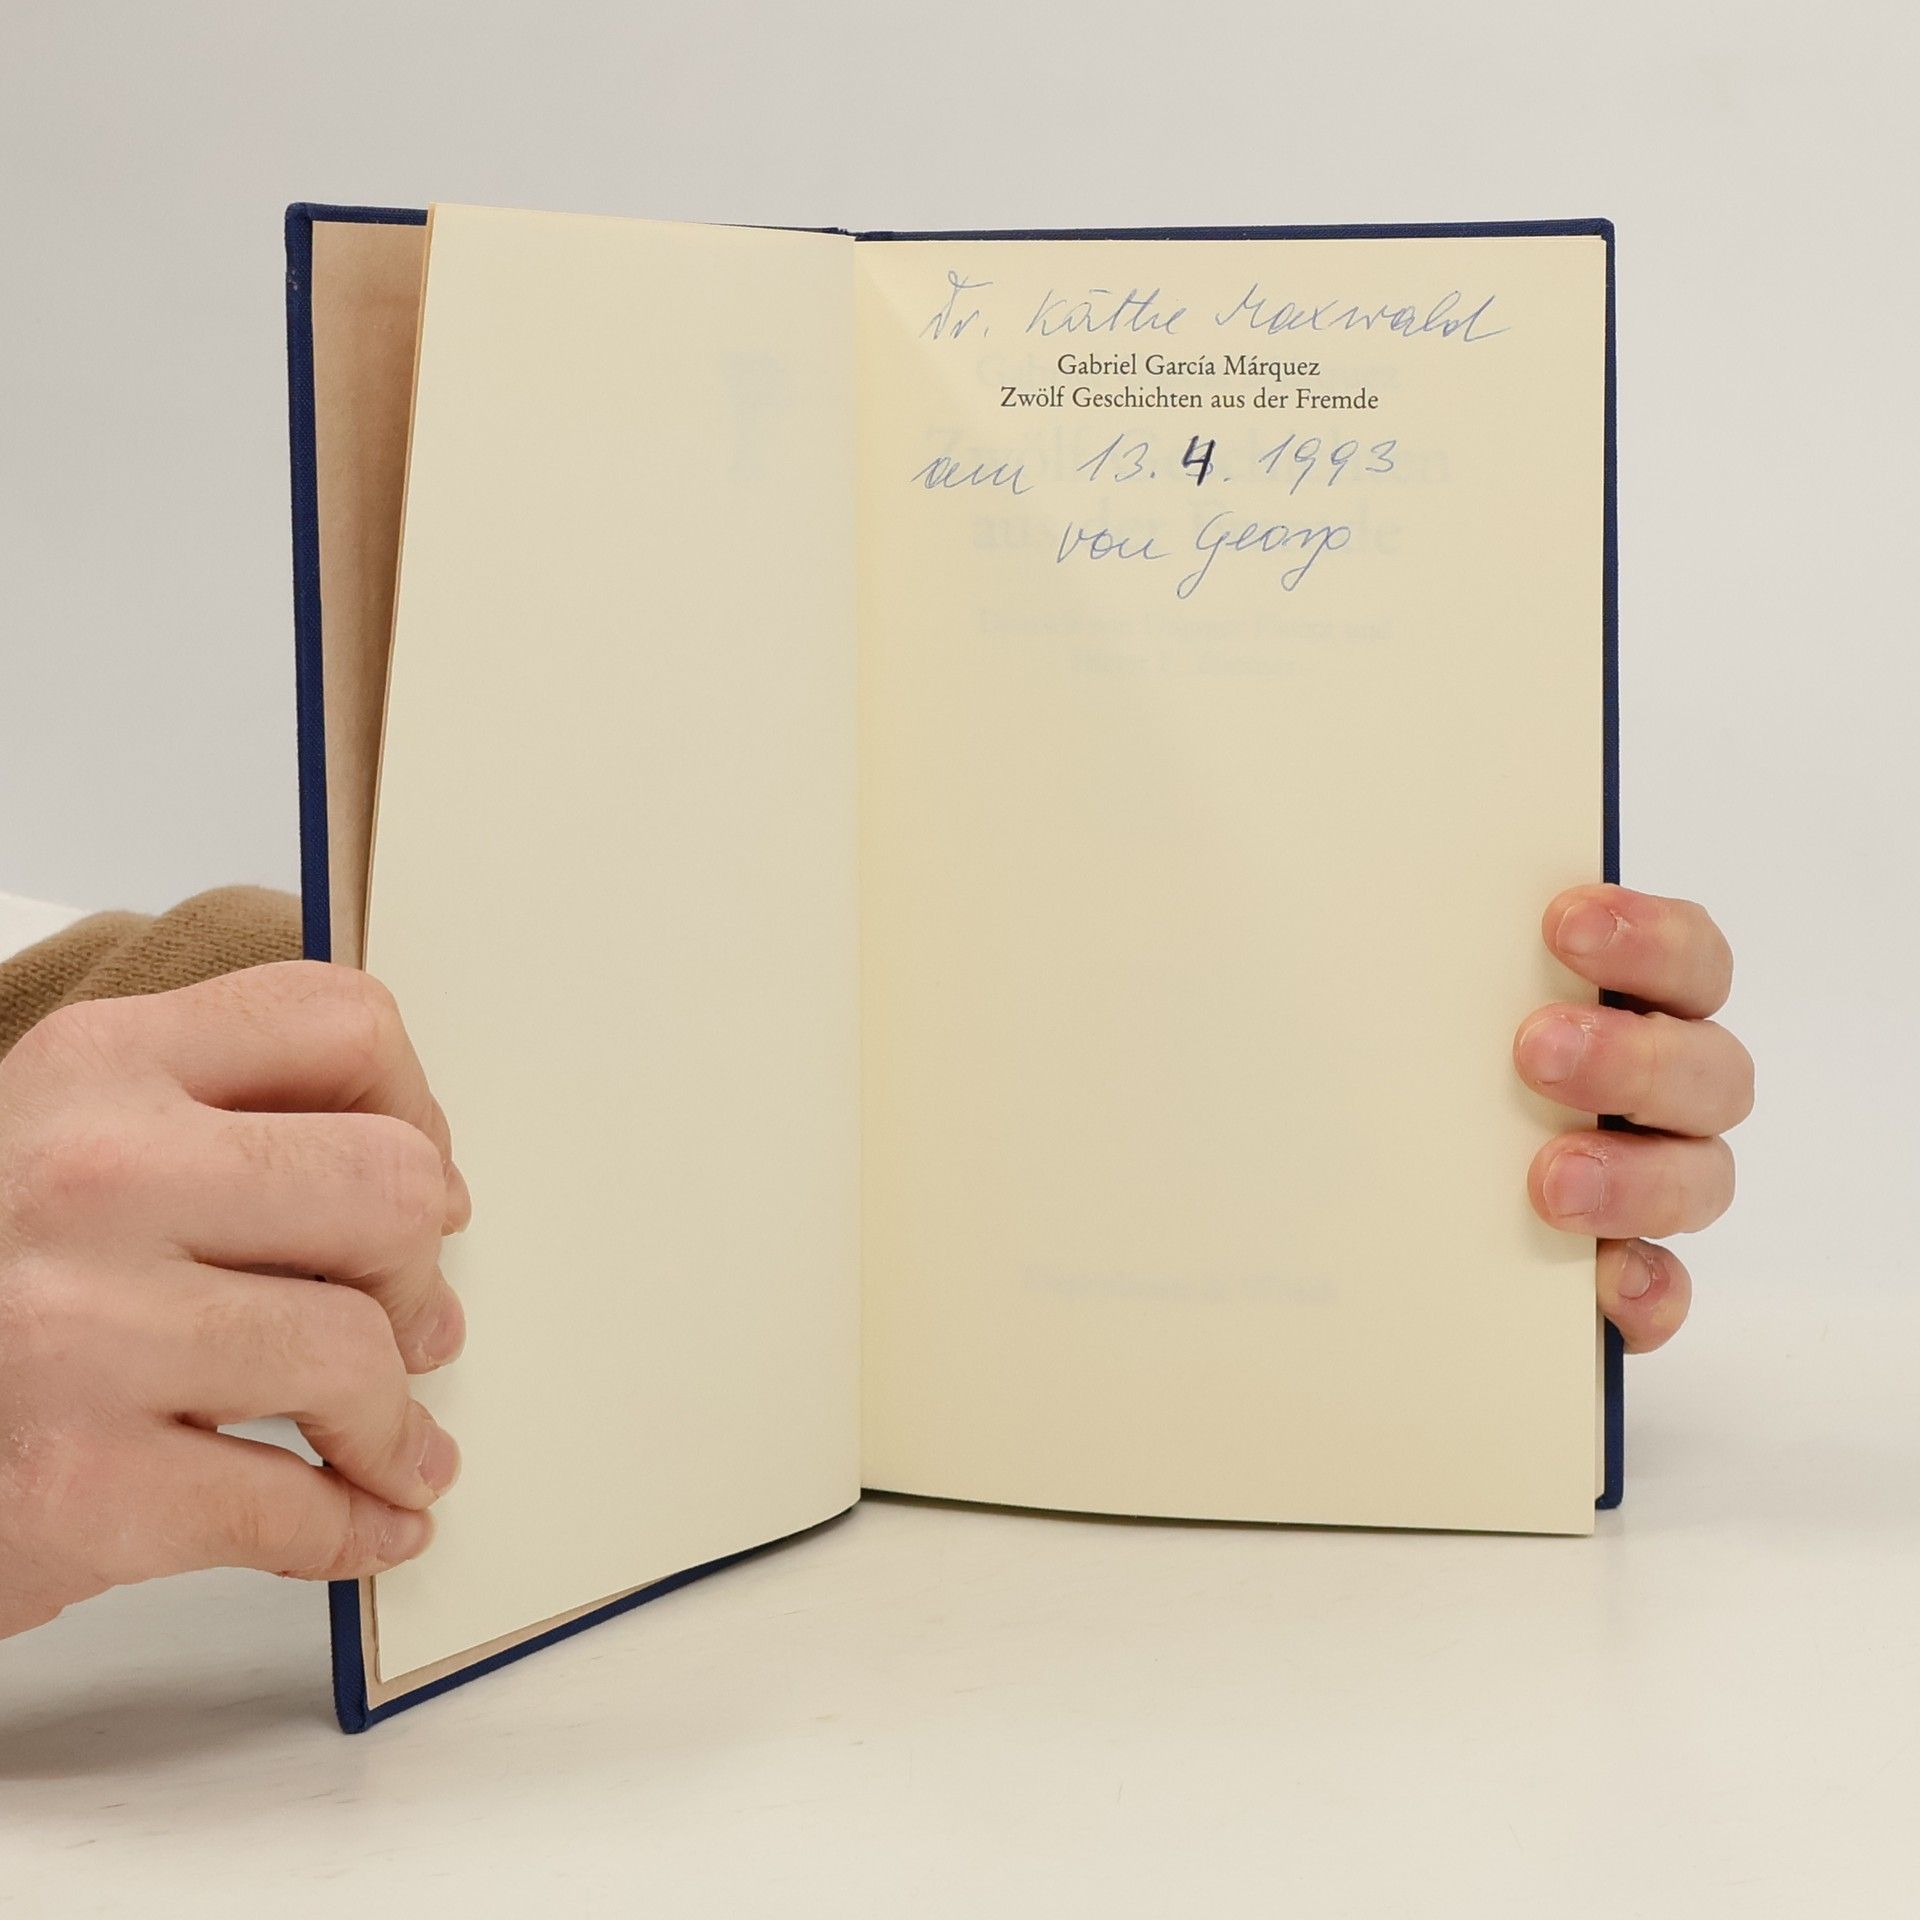 Dr. Käthe Maxwald
Gabriel García Márquez
Zwölf Geschichten aus der Fremde
am 13. 4. 1993
von Georg